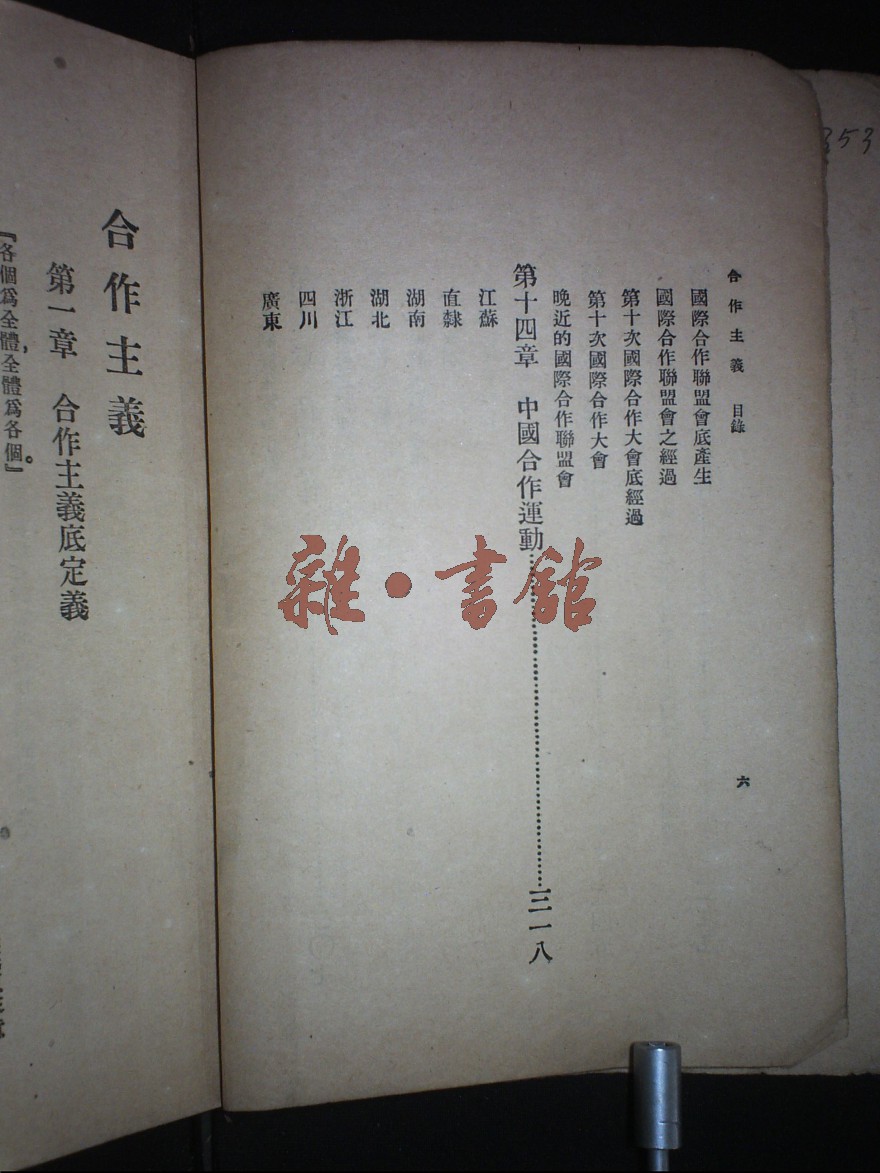 353
合作主義 目錄
六
國際合作聯盟會底產生
國際合作聯盟會之經過
第十次國際合作大會底經過
第十次國際合作大會
晚近的國際合作聯盟會
第十四章 中國合作運動……三一八
江蘇
直隸
湖南
湖北
浙江
四川
廣東
雜·書館
合作主義
第一章 合作主義底定義
『各個爲全體,全體爲各個。』